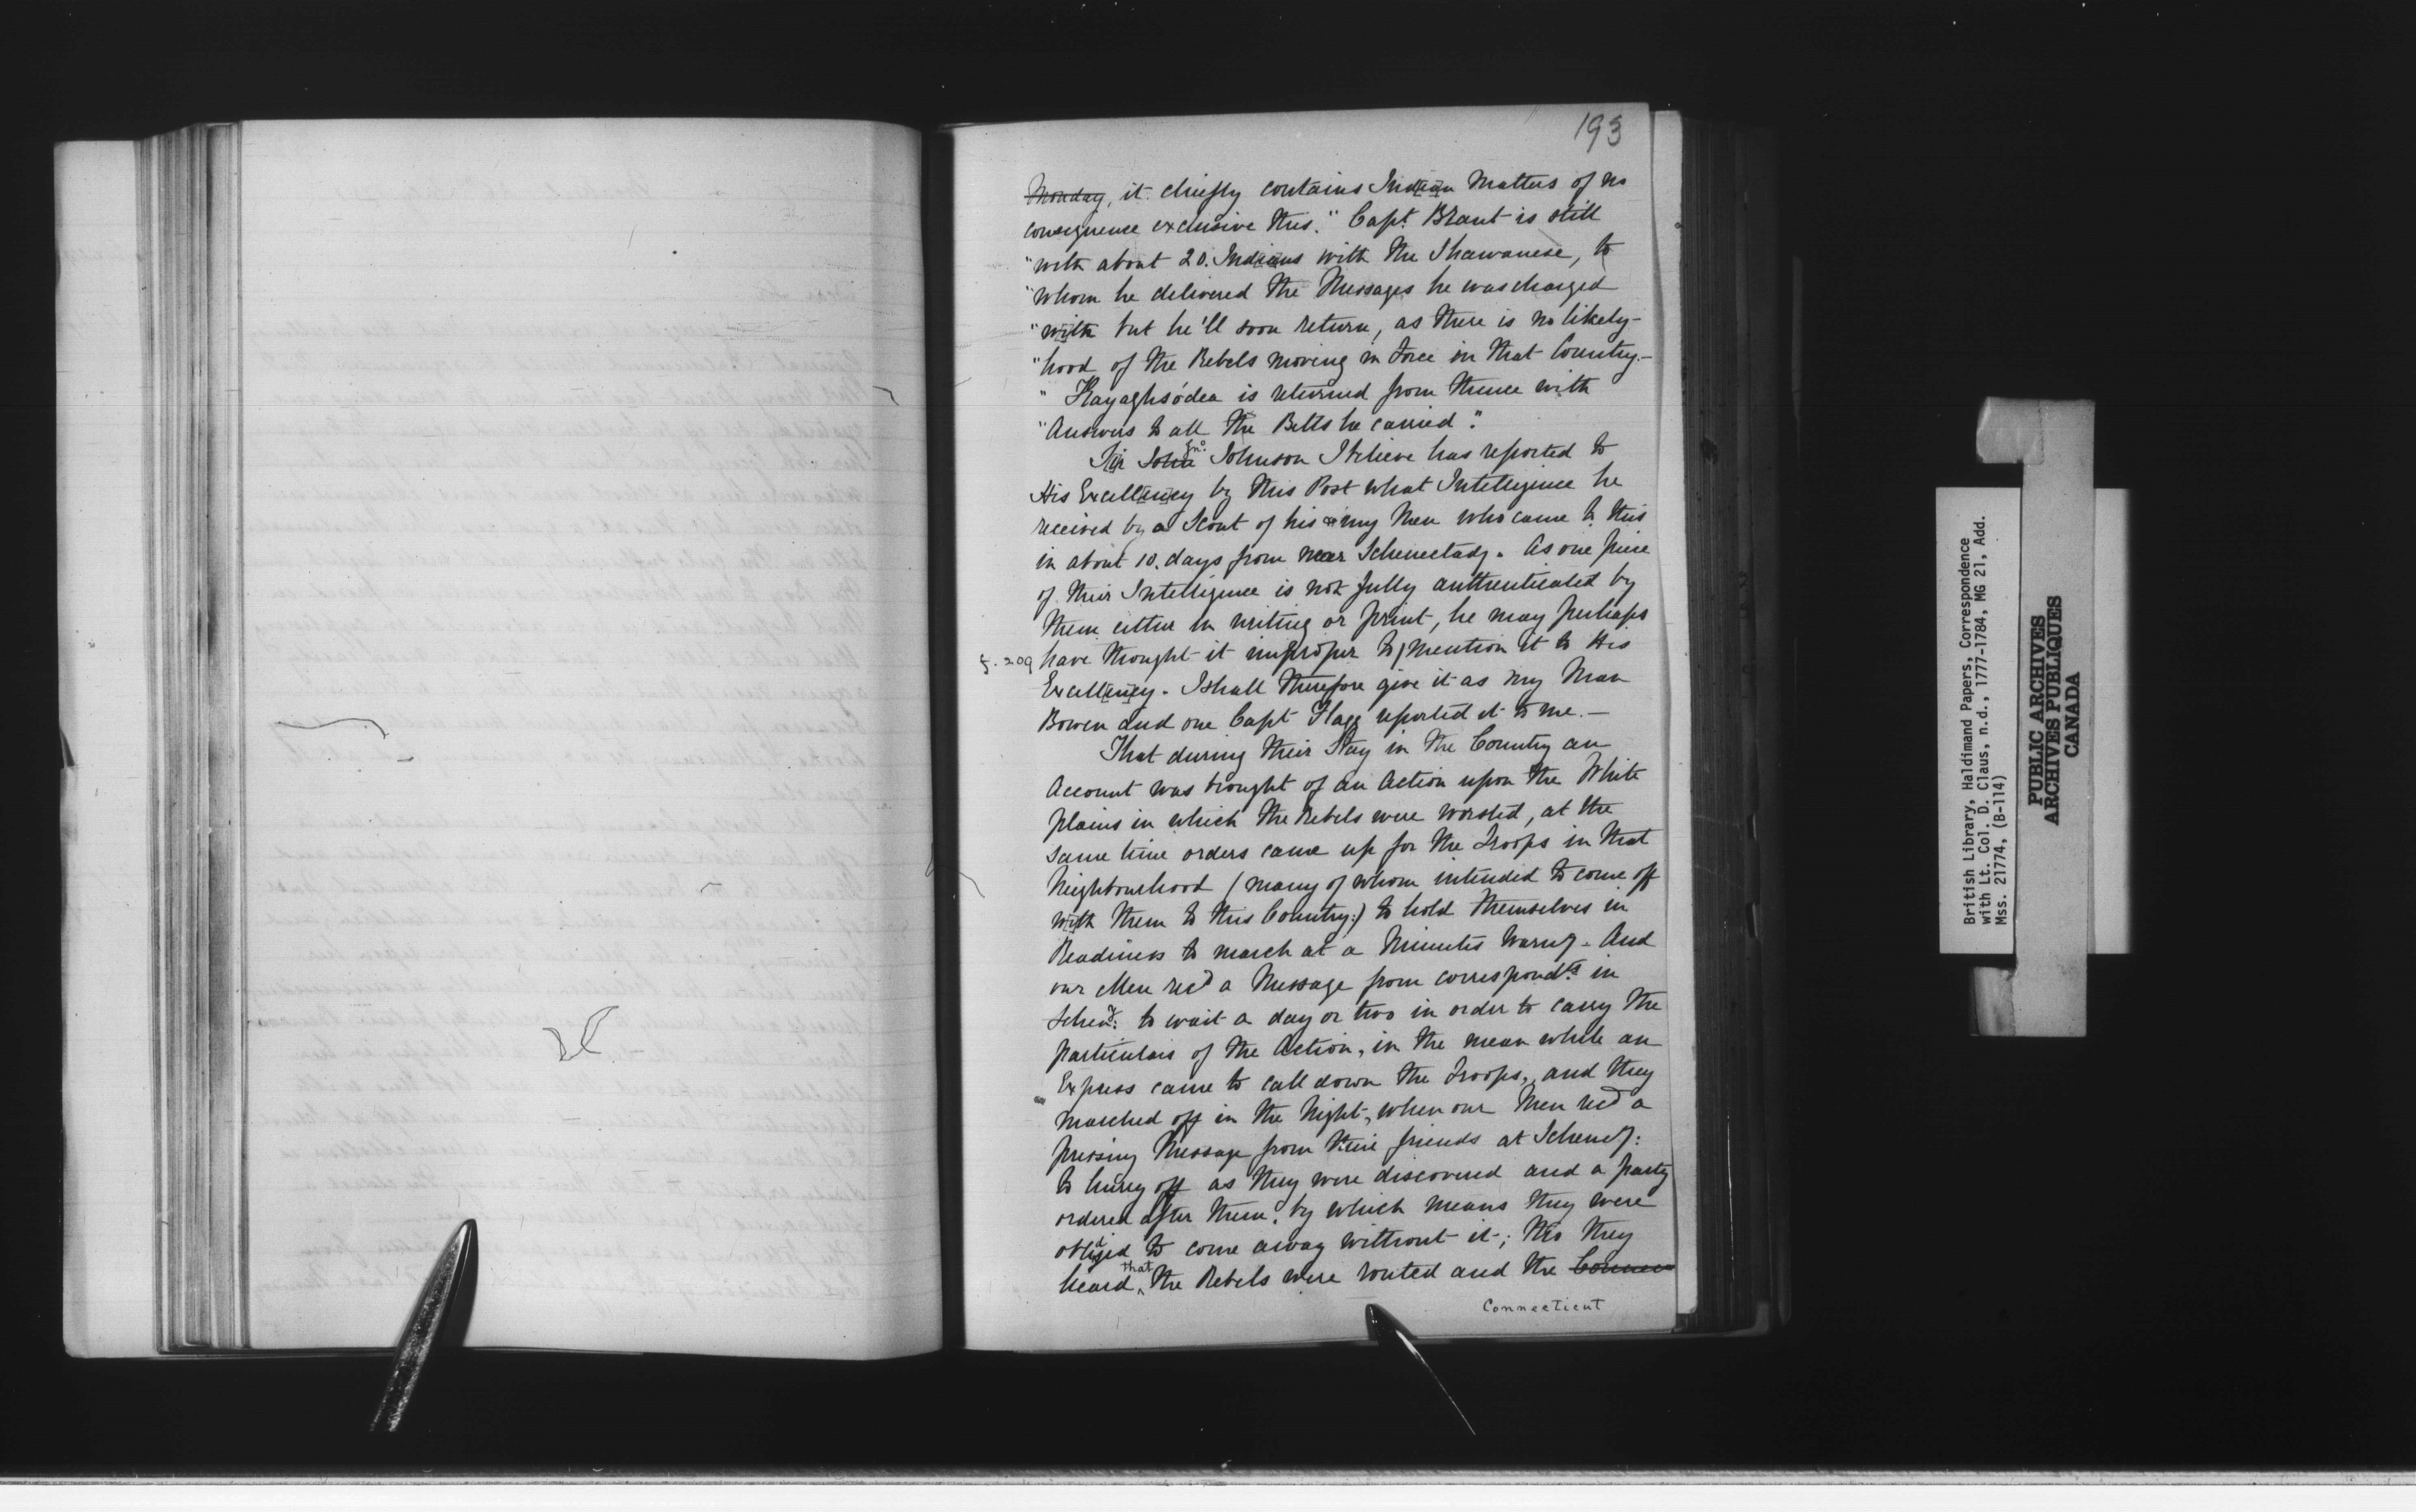 193
Monday, it chiefly contains Indian Matters of no
consequence exclusive this. "Capt. Brant is still
"with about 20. Indians with the Shawanese, to
"whom he delivered the Messages he was charged
"with but he'll soon return, as there is no likely-
"hood of the Rebels moving in force in that Country.-
" Kayaghsódea is returned from thence with
"Answers to all the Belts he carried".
Sir John Jno. Johnson I believe has reported to
His Excellency by this Post what Intelligence he
received by a Scout of his & my Men who came to this
in about 10. days from near Schenectady. As one piece
of their Intelligence is not fully authenticated by
them either in writing or print, he may perhaps
f. 209 have thought it improper to / mention it to His
Excellency. I shall therefore give it as my Man
Bowen and one Capt Flagg reported it to me. -
That during their Stay in the Country an
Account was brought of an Action upon the White
plains in which the Rebels were worsted, at the
same time orders came up for the Troops in that
Neighbourhood (many of whom intended to come off
with them to this Country:) to hold themselves in
Readiness to march at a Minutes Warng - And
our Men recd a Message from correspondts in
Schendy: to wait a day or two in order to carry the
particulars of the Action, in the mean while an
Express came to call down the Troops, and they
marched off in the Night, when our Men recd a
pressing Message from their friends at Schendy:
to hurry off as they were discovered and a party
ordered after them, by which means they were
obliged to come away without it; tho they
heard ^ that the Rebels were routed and the Connec
Connecticut
British Library, Haldimand Papers, Correspondence
with Lt. Col. D. Claus, n.d., 1777-1784, MG 21, Add.
Mss. 21774, (B-114)
PUBLIC ARCHIVES
ARCHIVES PUBLIQUES
CANADA